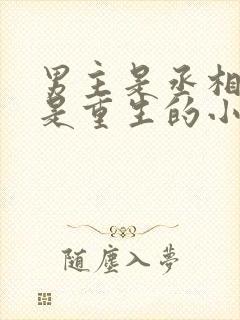 男主是丞相
是重生的小
随尘入梦